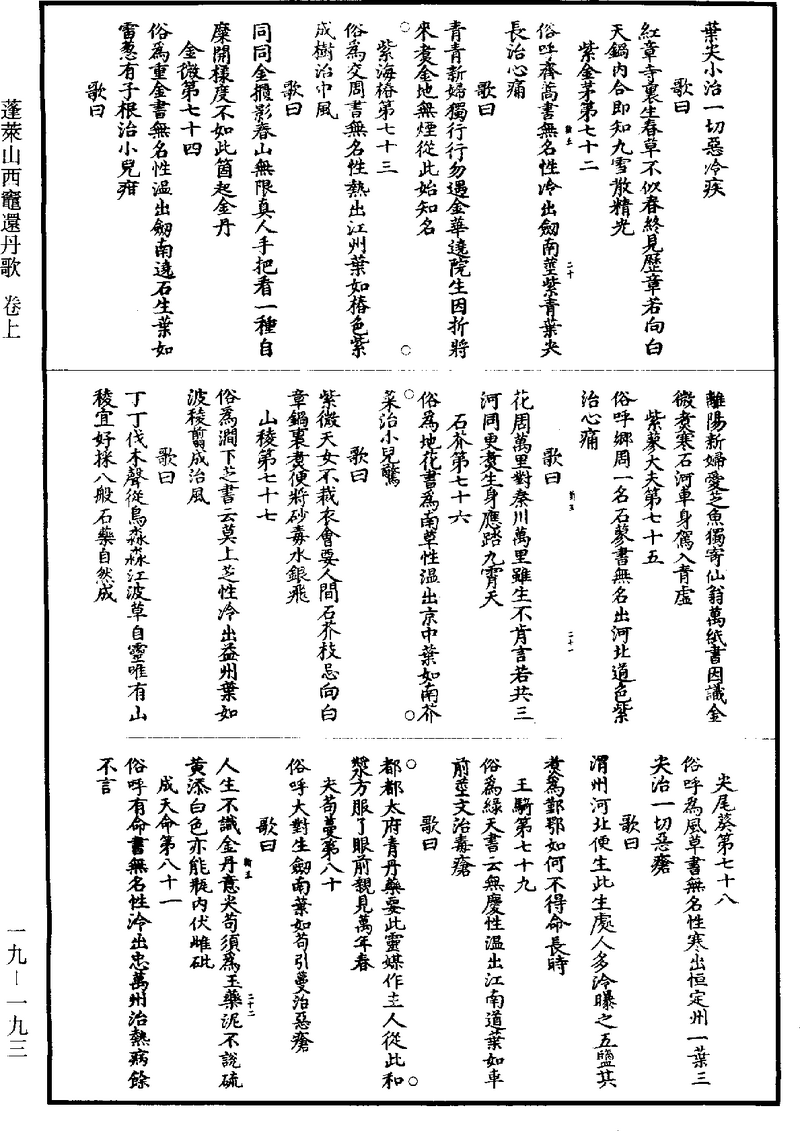 葉尖小治一切惡冷疾
歌曰
紅章寺裏生春草不似春終見歷章若向白
天鍋內合即知九雪散精光
紫金茅第七十二
俗呼齊蒿書無名性冷出劒南莖紫青葉尖
長治心痛
歌曰
青青新婦獨行行勿遇金華遶院生因折將
來煑金地無煙從此始知名
紫海椿第七十三
俗為交周書無名性熱出江州葉如椿色紫
成樹治中風
歌曰
同同全擺影春山無限真人手把看一種自
糜開樣度不如此箇起金丹
金微第七十四
俗為重金書無名性溫出劒南遶石生葉如
雷葱有子根治小兒疳
歌曰
離陽新婦愛芝魚獨寄仙翁萬紙書因識金
微煑寒石河車身駕入青虛
紫蓼大夫第七十五
俗呼鄉周一名石蓼書無名出河北道色紫
治心痛
歌曰
花周萬里對秦川萬里雖生不肯言若共三
河同更煑生身應踏九霄天
石芥第七十六
俗為地花書為南草性溫出京中葉如南芥
菜治小兒驚
歌曰
紫微天女不裁衣會要人間石芥枝忌向白
章鍋裏煑便將砂毒水銀飛
山稜第七十七
俗為澗下芝書云莫上芝性冷出益州葉如
波稜剪成治風
歌曰
丁丁伐木聲從鳥淼淼江波草自靈唯有山
稜宜好採八般石藥自然成
尖尾葵第七十八
俗呼為風草書無名性寒出恒定州一葉三
尖治一切惡瘡
歌曰
渭州河北便生此生處人多冷曝之五鹽其
煑為鄞鄂如何不得命長時
王騎第七十九
俗為綠天書云無慶性溫出江南道葉如車
前莖文治毒瘡
歌曰
都都太府青丹藥要此靈媒作立人從此和
漿方服了眼前親見萬年春
尖苟蔓第八十
俗呼大對生劒南葉如苟引蔓治惡瘡
歌曰
人生不識金丹意尖苟須為玉藥泥不說硫
黃添白色亦能瓶內伏雌砒
成天命第八十一
俗呼有命書無名性冷出忠萬州治熱病餘
不言
蓬萊山西竈還丹歌 卷上
一九－一九三